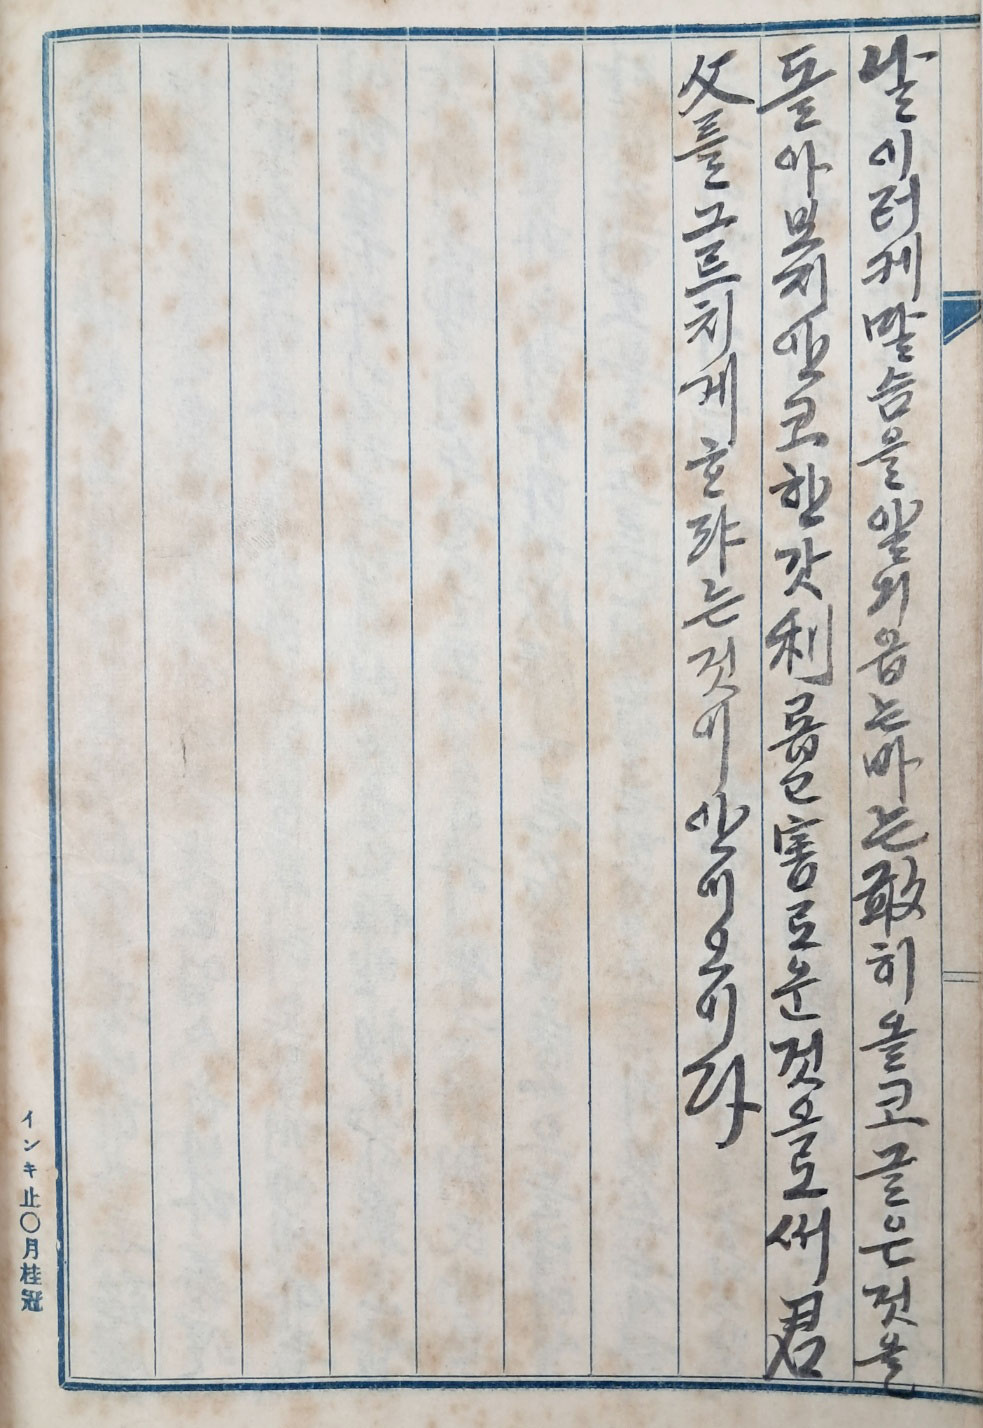 날이러케말슴을알외읍는바는敢히올코글은것을
돌아보지안코한갓利롭고害로운것으로써君
父를그르치게흐랴는것이안이오이다
インキ止〇月桂冠